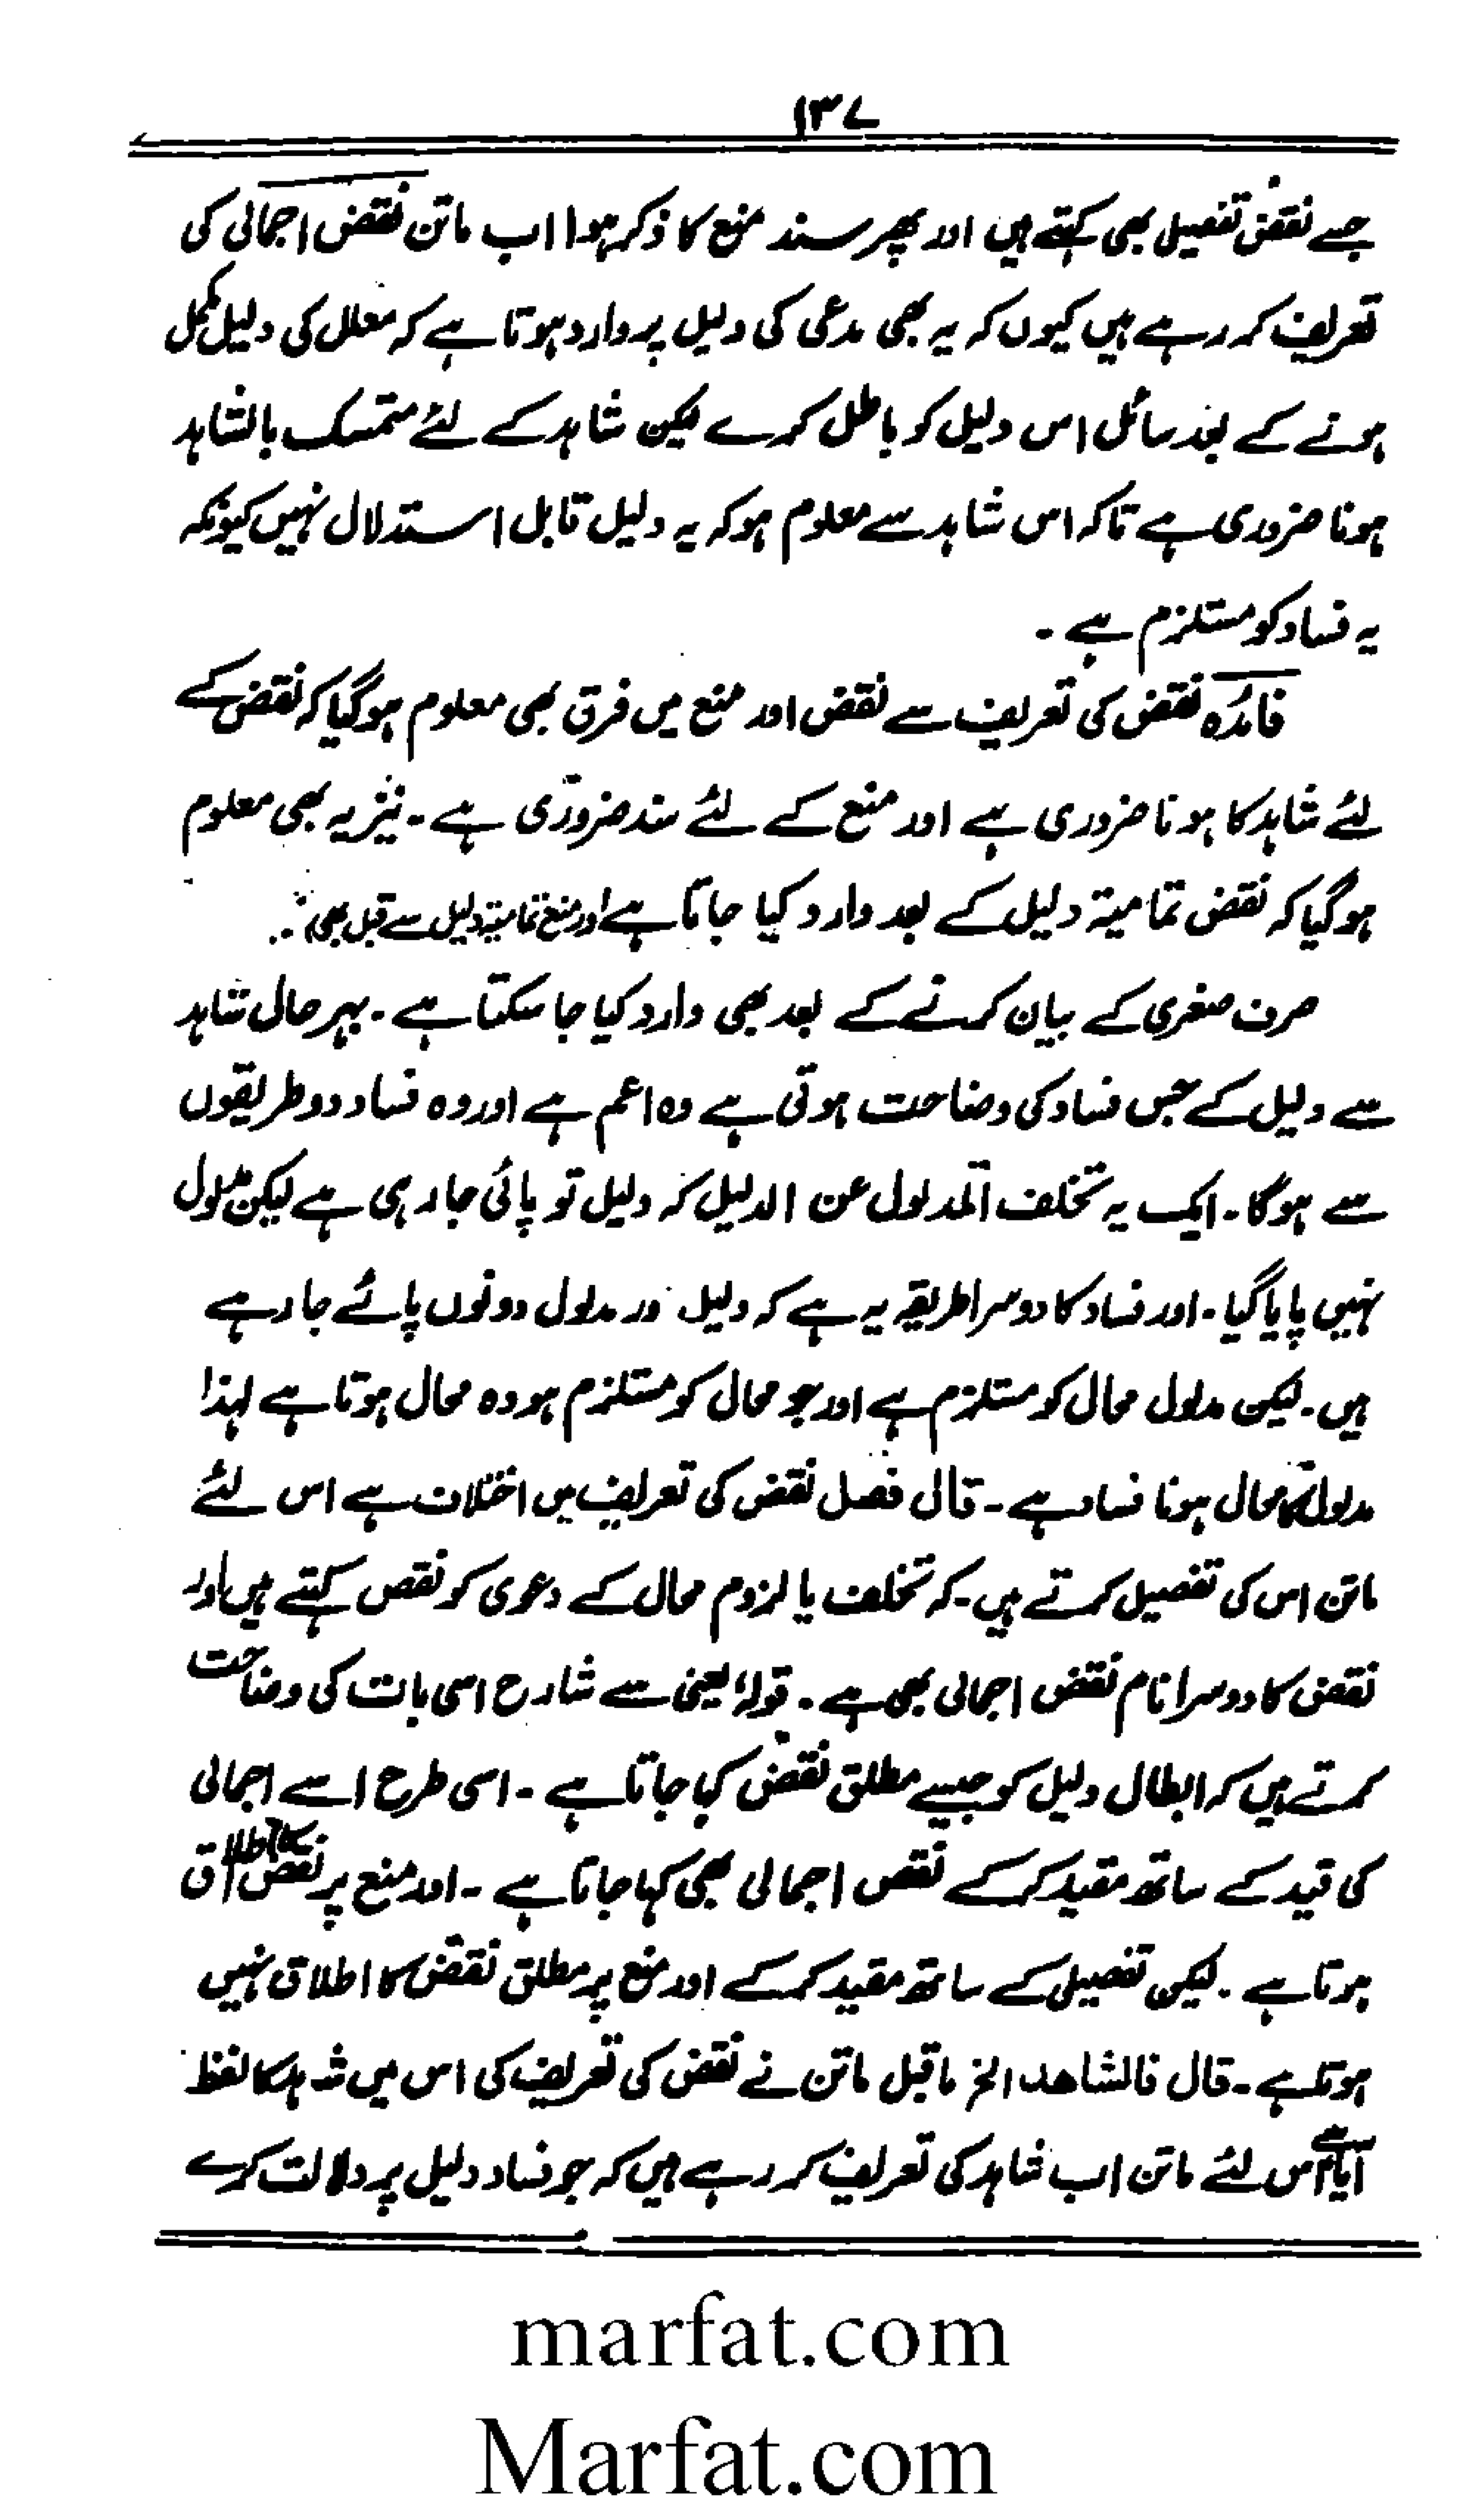 ۱۳۷
جسے نقض تفصیلی بھی کہتے ہیں اور پھر سند منع کا ذکر ہوا اب ماتن نقض اجمالی کی
تعریف کر رہے ہیں کیوں کہ یہ بھی مدعی کی دلیل پر وارد ہوتا ہے کہ معلل کی دلیل مکمل
ہونے کے بعد سائل اس دلیل کو باطل کرے لیکن شاہد کے لئے متمسک بالشاہد
ہونا ضروری ہے تاکہ اس شاہد سے معلوم ہو کہ یہ دلیل قابل استدلال نہیں کیونکہ
یہ فساد کو مستلزم ہے ۔
فائدہ نقض کی تعریف سے نقض اور منع میں فرق بھی معلوم ہو گیا کہ نقض کے
لئے شاہد کا ہونا ضروری ہے اور منع کے لئے سند ضروری ہے ۔ نیز یہ بھی معلوم
ہو گیا کہ نقض تمامیۃ دلیل کے بعد وارد کیا جاتا ہے اور منع تمامیۃ دلیل سے قبل بھی
صرف صغری کے بیان کرنے کے بعد بھی وارد کیا جا سکتا ہے ۔ بہر حال شاہد
سے دلیل کے جس فساد کی وضاحت ہوتی ہے وہ اعم ہے اور وہ فساد دو طریقوں
سے ہوگا ۔ ایک یہ تخلف المدلول عن الدلیل کہ دلیل تو پائی جا رہی ہے لیکن مدلول
نہیں پایا گیا ۔ اور فساد کا دوسرا طریقہ یہ ہے کہ دلیل ور مدلول دونوں پائے جا رہے
ہیں ۔ لیکن مدلول محال کو مستلزم ہے اور جو محال کو مستلزم ہو وہ محال ہوتا ہے لہذا
مدلول کا محال ہونا فساد ہے ۔ قال فصل نقض کی تعریف میں اختلاف ہے اس لئے
ماتن اس کی تفصیل کرتے ہیں ۔ کہ تخلف یا لزوم محال کے دعوی کو نقض کہتے ہیں اور
نقض کا دوسرا نام نقض اجمالی بھی ہے ۔ قولہ یعنی سے شارح اسی بات کی وضاحت
کرتے ہیں کہ ابطال دلیل کو جیسے مطلق نقض کہا جاتا ہے ۔ اسی طرح اسے اجمالی
کی قید کے ساتھ مقید کر کے نقض اجمالی بھی کہا جاتا ہے ۔ اور منع پر نقض کا اطلاق
ہوتا ہے ۔ لیکن تفصیلی کے ساتھ مقید کر کے اور منع پر مطلق نقض کا اطلاق نہیں
ہوتا ہے ۔ قال فالشاھد الخ ماقبل ماتن نے نقض کی تعریف کی اس میں شاہد کا لفظ
آیا ہے اس لئے ماتن اب شاہد کی تعریف کر رہے ہیں کہ جو فساد دلیل پر دلالت کرے
marfat.com
Marfat.com